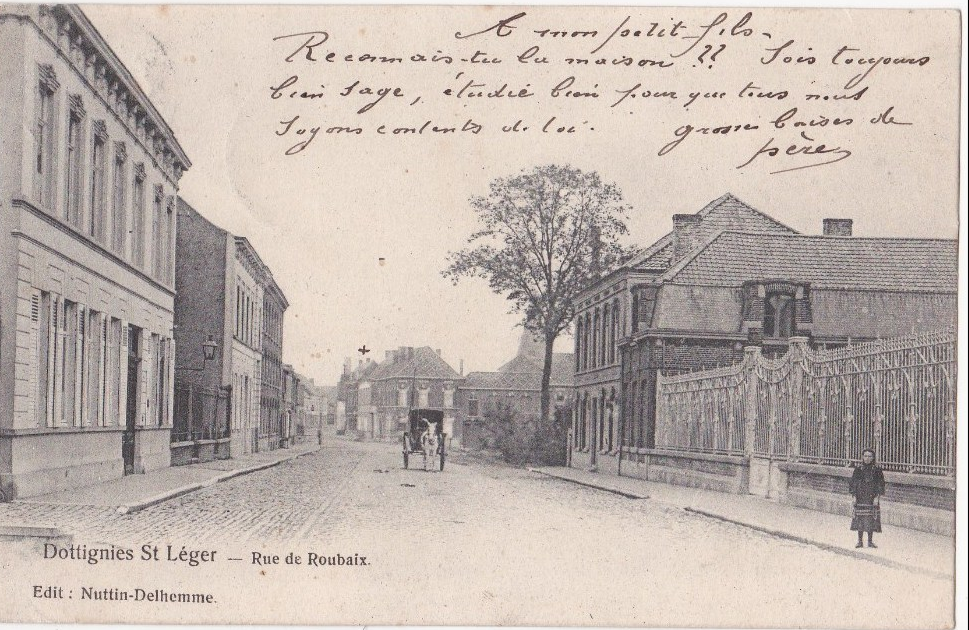 A mon petit fils.
Reconnais-tu la maison ?? Sois toujours
bien sage, étudie bien pour que tous nous
soyons contents de toi. grosses baises de
père
Dottignies St Léger — Rue de Roubaix.
Edit : Nuttin-Delhemme.